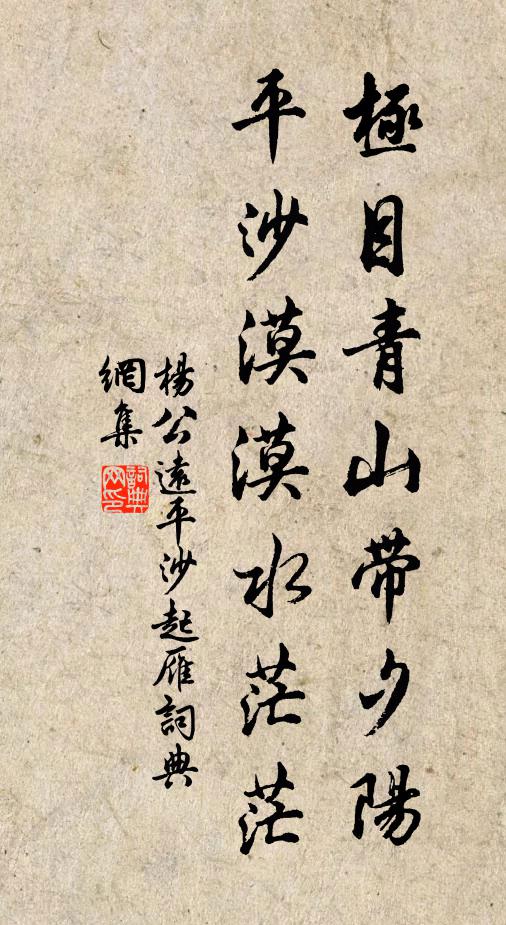 極目青山带夕陽
平沙漠漠水茫茫
楊公遠平沙起雁詞典
網集
詞典
网印